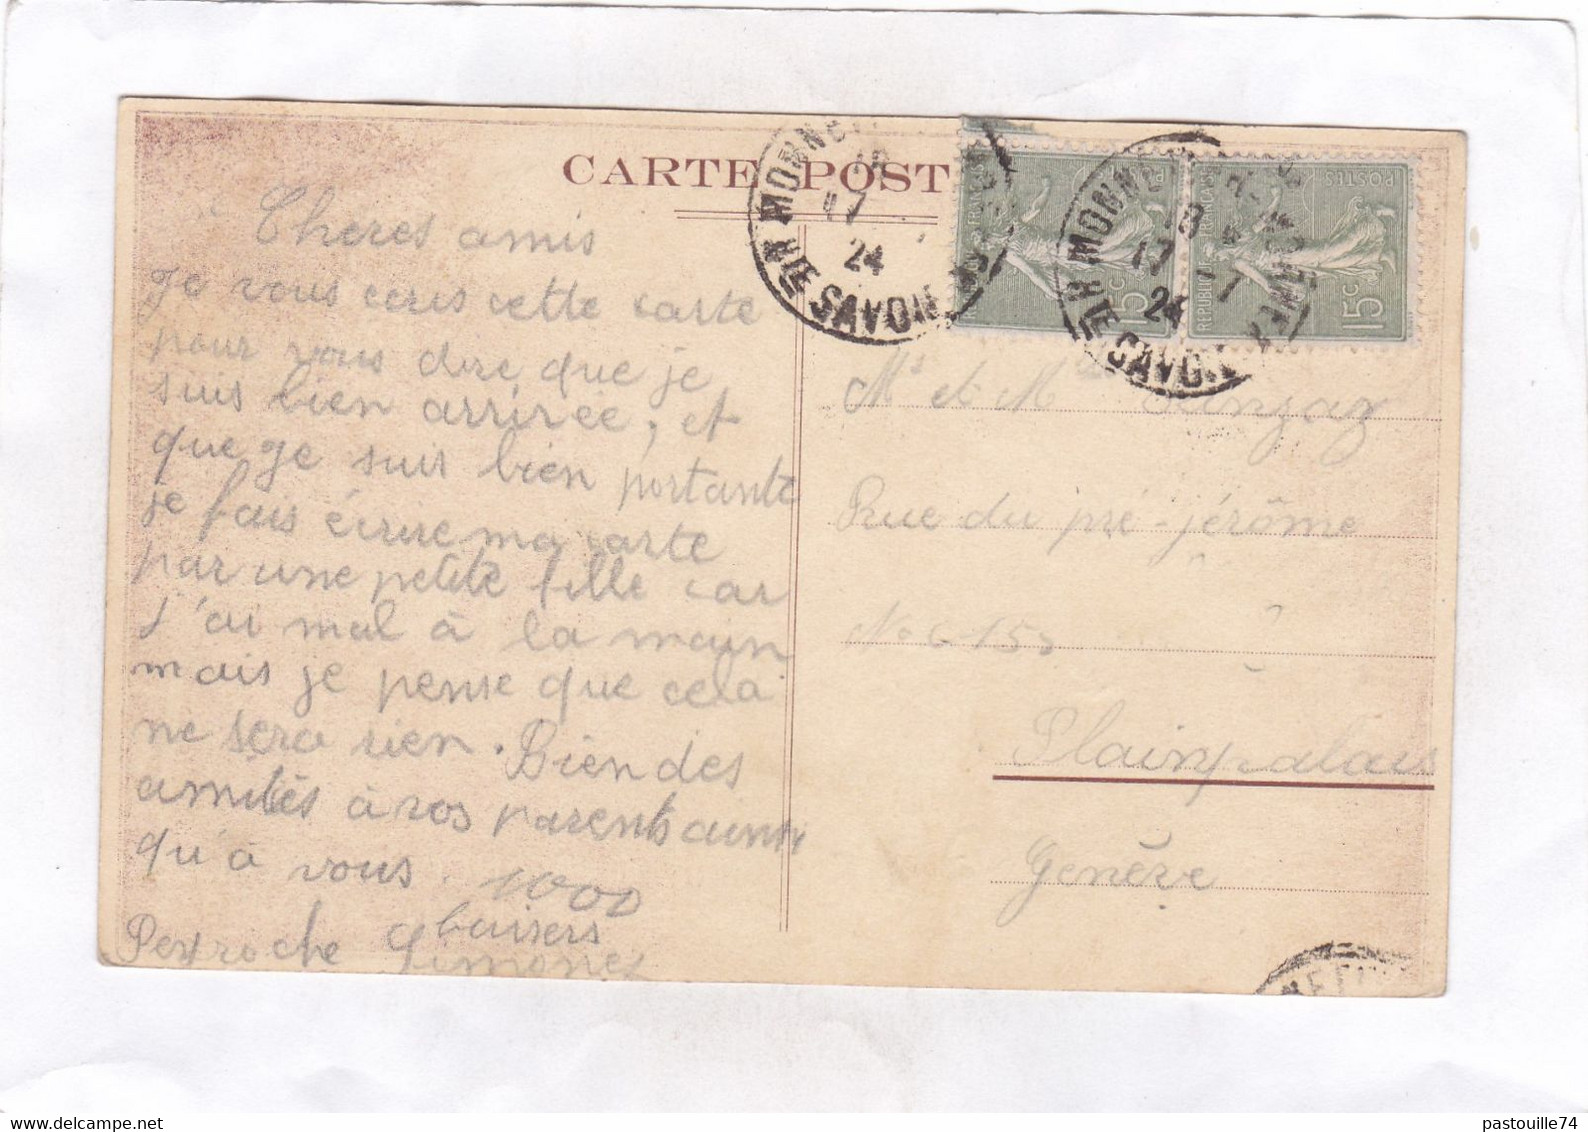 CARTE POST
Cheres amis
Je vous ecris cette carte
pour vous dire que je
suis bien arrivée, et
que je suis bien portante
je fais écrire ma carte
par une petite fille car
j'ai mal à la main
mais je pense que cela
ne sera rien. Bien des
amitiés à vos parents ainsi
qu'à vous. 1000
baisers
Perroche Simone
Mr et M
Rue du pré-jérôme
No
Plainpalais
Genève
MONNE
17
24
SAVOIE
FRANÇAISE
15c
MONNE
17
24
SAVOIE
REPUBLIQUE FRANÇAISE
POSTES
15c
pastouille74